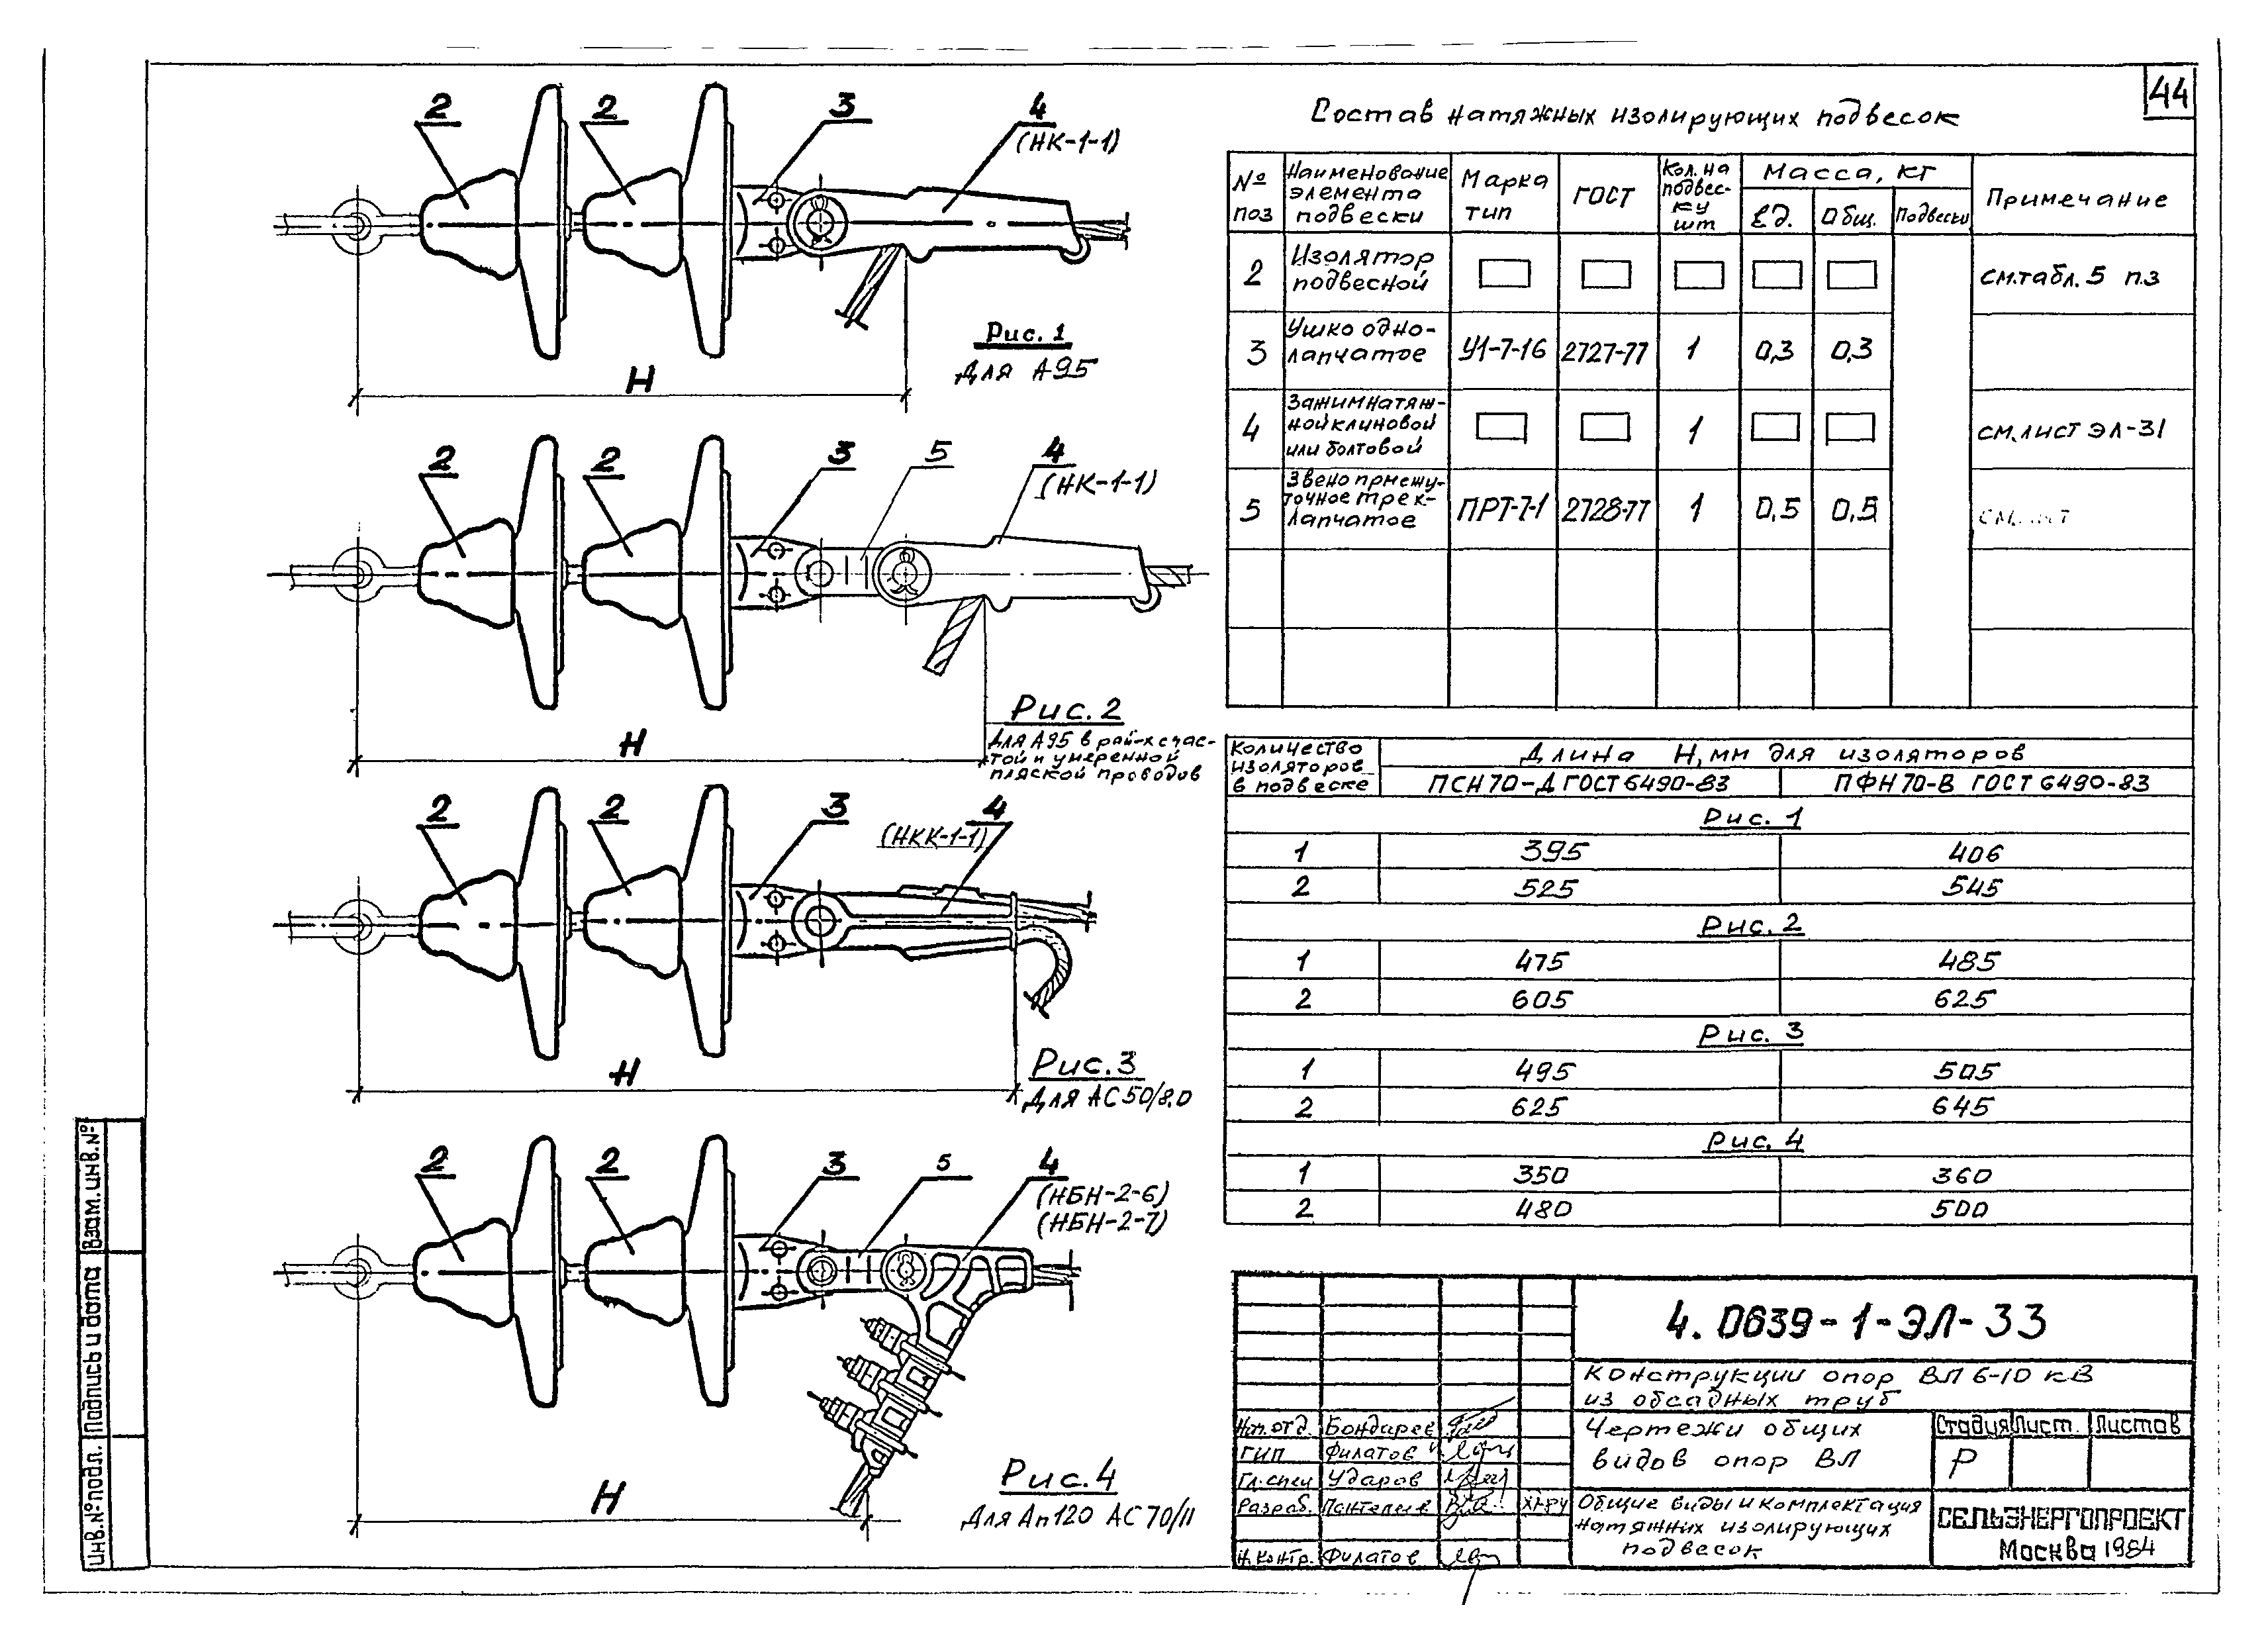 44
2
2
3
4
(НК-1-1)
Рис. 1
Для А95
Н
2
2
3
5
4
(НК-1-1)
Рис. 2
Для А95 в рай-х с час-
той и умеренной
пляской проводов
Н
2
2
3
(НКК-1-1)
4
Рис. 3
Для АС50/8.0
Н
2
2
3
5
4
(НБН-2-6)
(НБН-2-7)
Рис. 4
Для Ап120 АС70/11
Н
Состав натяжных изолирующих подвесок
№ поз
Наименование элемента подвески
Марка тип
ГОСТ
Кол. на подвес-ку шт
Масса, кг
Ед.
Общ.
Подвески
Примечание
2 Изолятор подвесной см. табл. 5 пз
3 Ушко одно-лапчатое У1-7-16 2727-77 1 0,3 0,3
4 Зажим натяж-ной клиновой или болтовой 1 см. лист ЭЛ-31
5 Звено прмежу-точное трех-лапчатое ПРТ-7-1 2728-77 1 0,5 0,5
Количество изоляторов в подвеске
Длина Н, мм для изоляторов
ПСН70-Д ГОСТ 6490-83
ПФН70-В ГОСТ 6490-83
Рис. 1
1 395 406
2 525 545
Рис. 2
1 475 485
2 605 625
Рис. 3
1 495 505
2 625 645
Рис. 4
1 350 360
2 480 500
4.0639-1-ЭЛ-33
Конструкции опор ВЛ 6-10 кВ
из обсадных труб
Чертежи общих
видов опор ВЛ
Стадия Лист. Листов
Р
Общие виды и комплектация
натяжних изолирующих
подвесок
СЕЛЬЭНЕРГОПРОЕКТ
Москва 1984
Нач.отд. Бондарев
ГИП Филатов
Гл. спец Ударов
Разраб. Пантелеев
Н. контр. Филатов
Инв. № подл.
Подпись и дата
Взам. инв. №